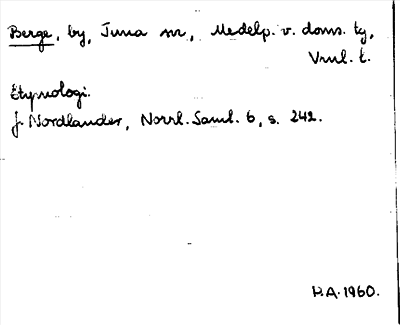 Berge, by, Tuna sn, Medelp. v. doms. tg,
Vnl. l.
Etymologi.
J. Nordlander, Norrl. Saml. 6, s. 242.
H.A. 1960.